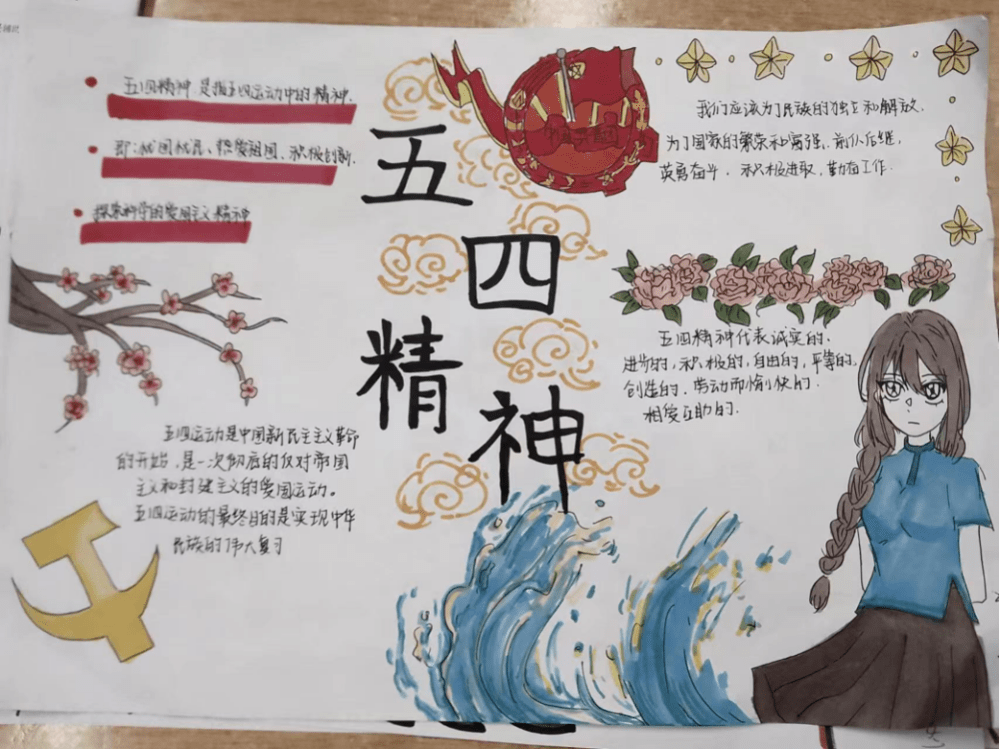 五四精神 是指五四运动中的精神.
即:忧国忧民、热爱祖国、积极创新.
探索科学的爱国主义精神
五四精神
我们应该为了民族的独立和解放.
为了国家的繁荣和富强.前仆后继,
英勇奋斗. 积极进取,勤奋工作.
五四精神代表诚实的.
进步的,积极的,自由的,平等的,
创造的.劳动而愉快的.
相爱互助的.
五四运动是中国新民主主义革命
的开始,是一次彻底的仅对帝国
主义和封建主义的爱国运动。
五四运动的最终目的是实现中华
民族的伟大复习